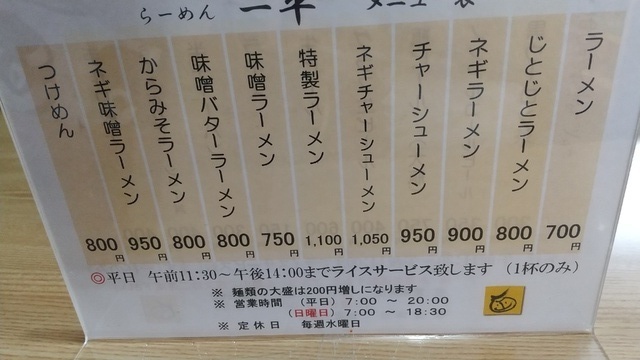 らーめん 一平 メニュー表
ラーメン 700円
じとじとラーメン 800円
ネギラーメン 900円
チャーシューメン 950円
ネギチャーシューメン 1,050円
特製ラーメン 1,100円
味噌ラーメン 750円
味噌バターラーメン 800円
からみそラーメン 800円
ネギ味噌ラーメン 950円
つけめん 800円
◎平日 午前11:30～午後14:00までライスサービス致します (1杯のみ)
※ 麺類の大盛は200円増しになります
※ 営業時間 (平日) 7:00 ～ 20:00
(日曜日) 7:00 ～ 18:30
※ 定休日 毎週水曜日